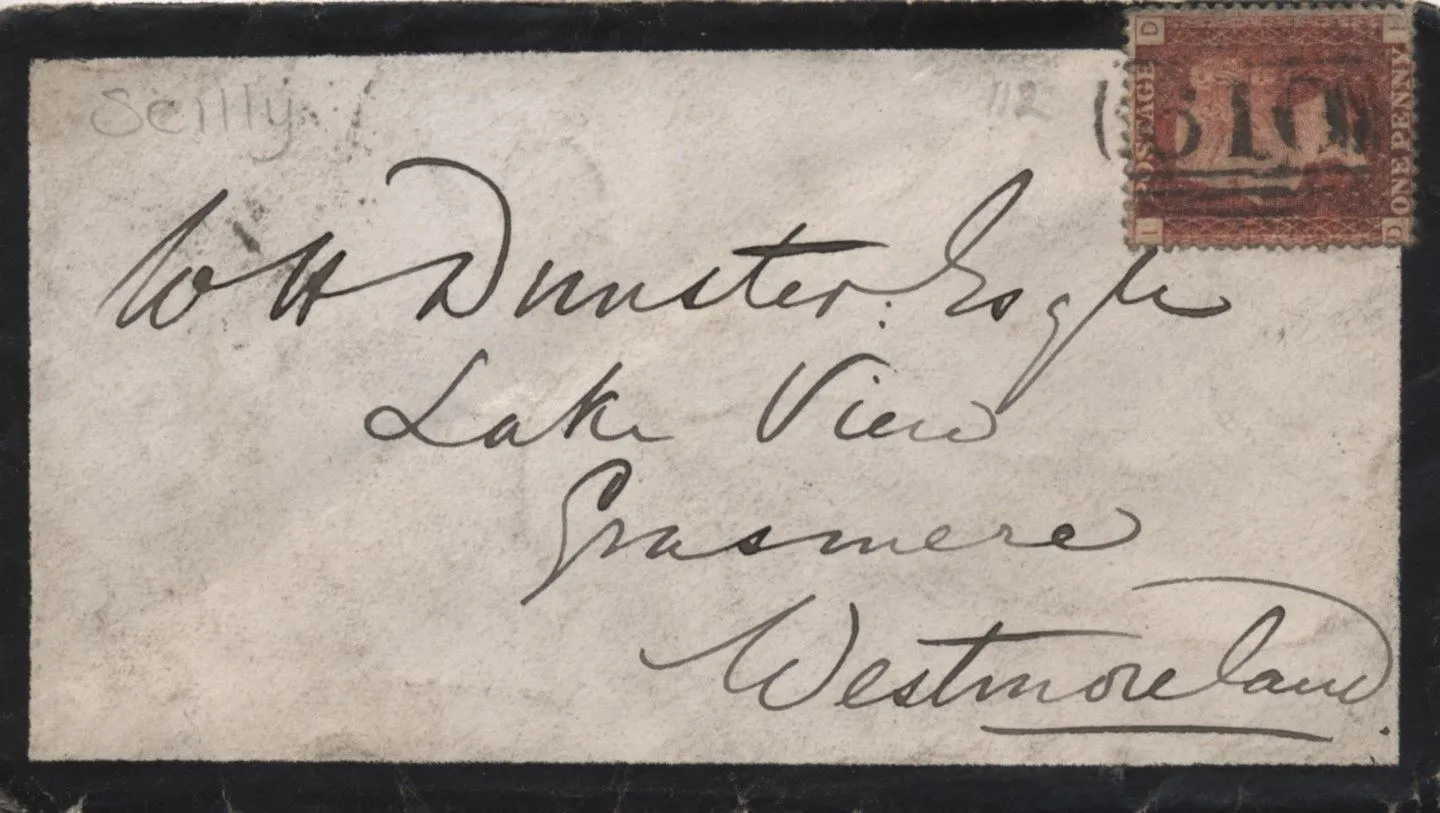 Scilly
112
D
POSTAGE
ONE PENNY
I
D
W H Dunster: Esqre
Lake View
Grasmere
Westmoreland.